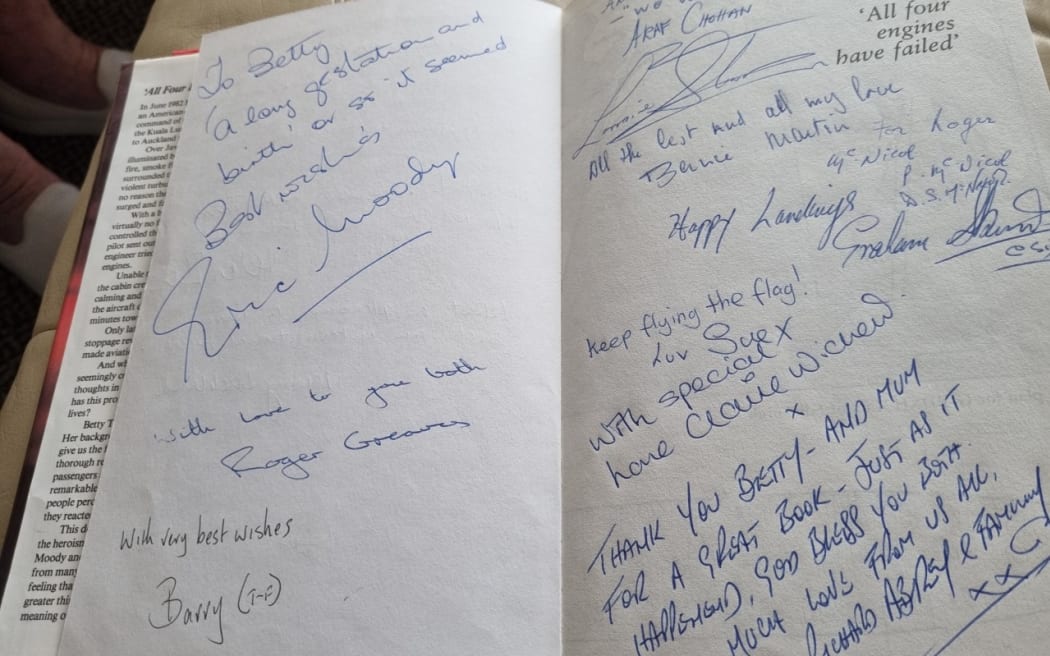 'All Four
In June 1982
an American
command of
the Kuala Lu
to Auckland
Over Jav
illuminated b
fire, smoke f
surrounded
violent turbu
no reason the
surged and fl
With a
virtually no f
controlled th
pilot sent out
engineer tried
engines.
Unable
the cabin cre
calming and
the aircraft
minutes tow
Only la
stoppage re
made aviati
And wh
seemingly o
thoughts in
has this pro
lives?
Betty T
Her backgr
give us the
thorough re
passengers
remarkable
people perc
they reacte
This d
the heroism
Moody an
from many
feeling tha
greater thi
meaning o
To Betty
(a long gestation and
birth' or so it seemed
Best wishes
Eric Moody
With love to you both
Roger Greaves
With very best wishes
Barry (T-F)
ARAF CHOHAN
'All four
engines
have failed'
All the best and all my love
Bernie Martin For Roger
Mc Nicol
P. Mc Nicol
Happy Landings
Graham
keep flying the flag!
Luv Sue X
With special
love Claire Wichend
x
THANK YOU BETTY- AND MUM
FOR A GREAT BOOK - JUST AS IT
HAPPENED, GOD BLESS YOU BOTH.
MUCH LOVE FROM US ALL,
RICHARD & FAMILY
XX